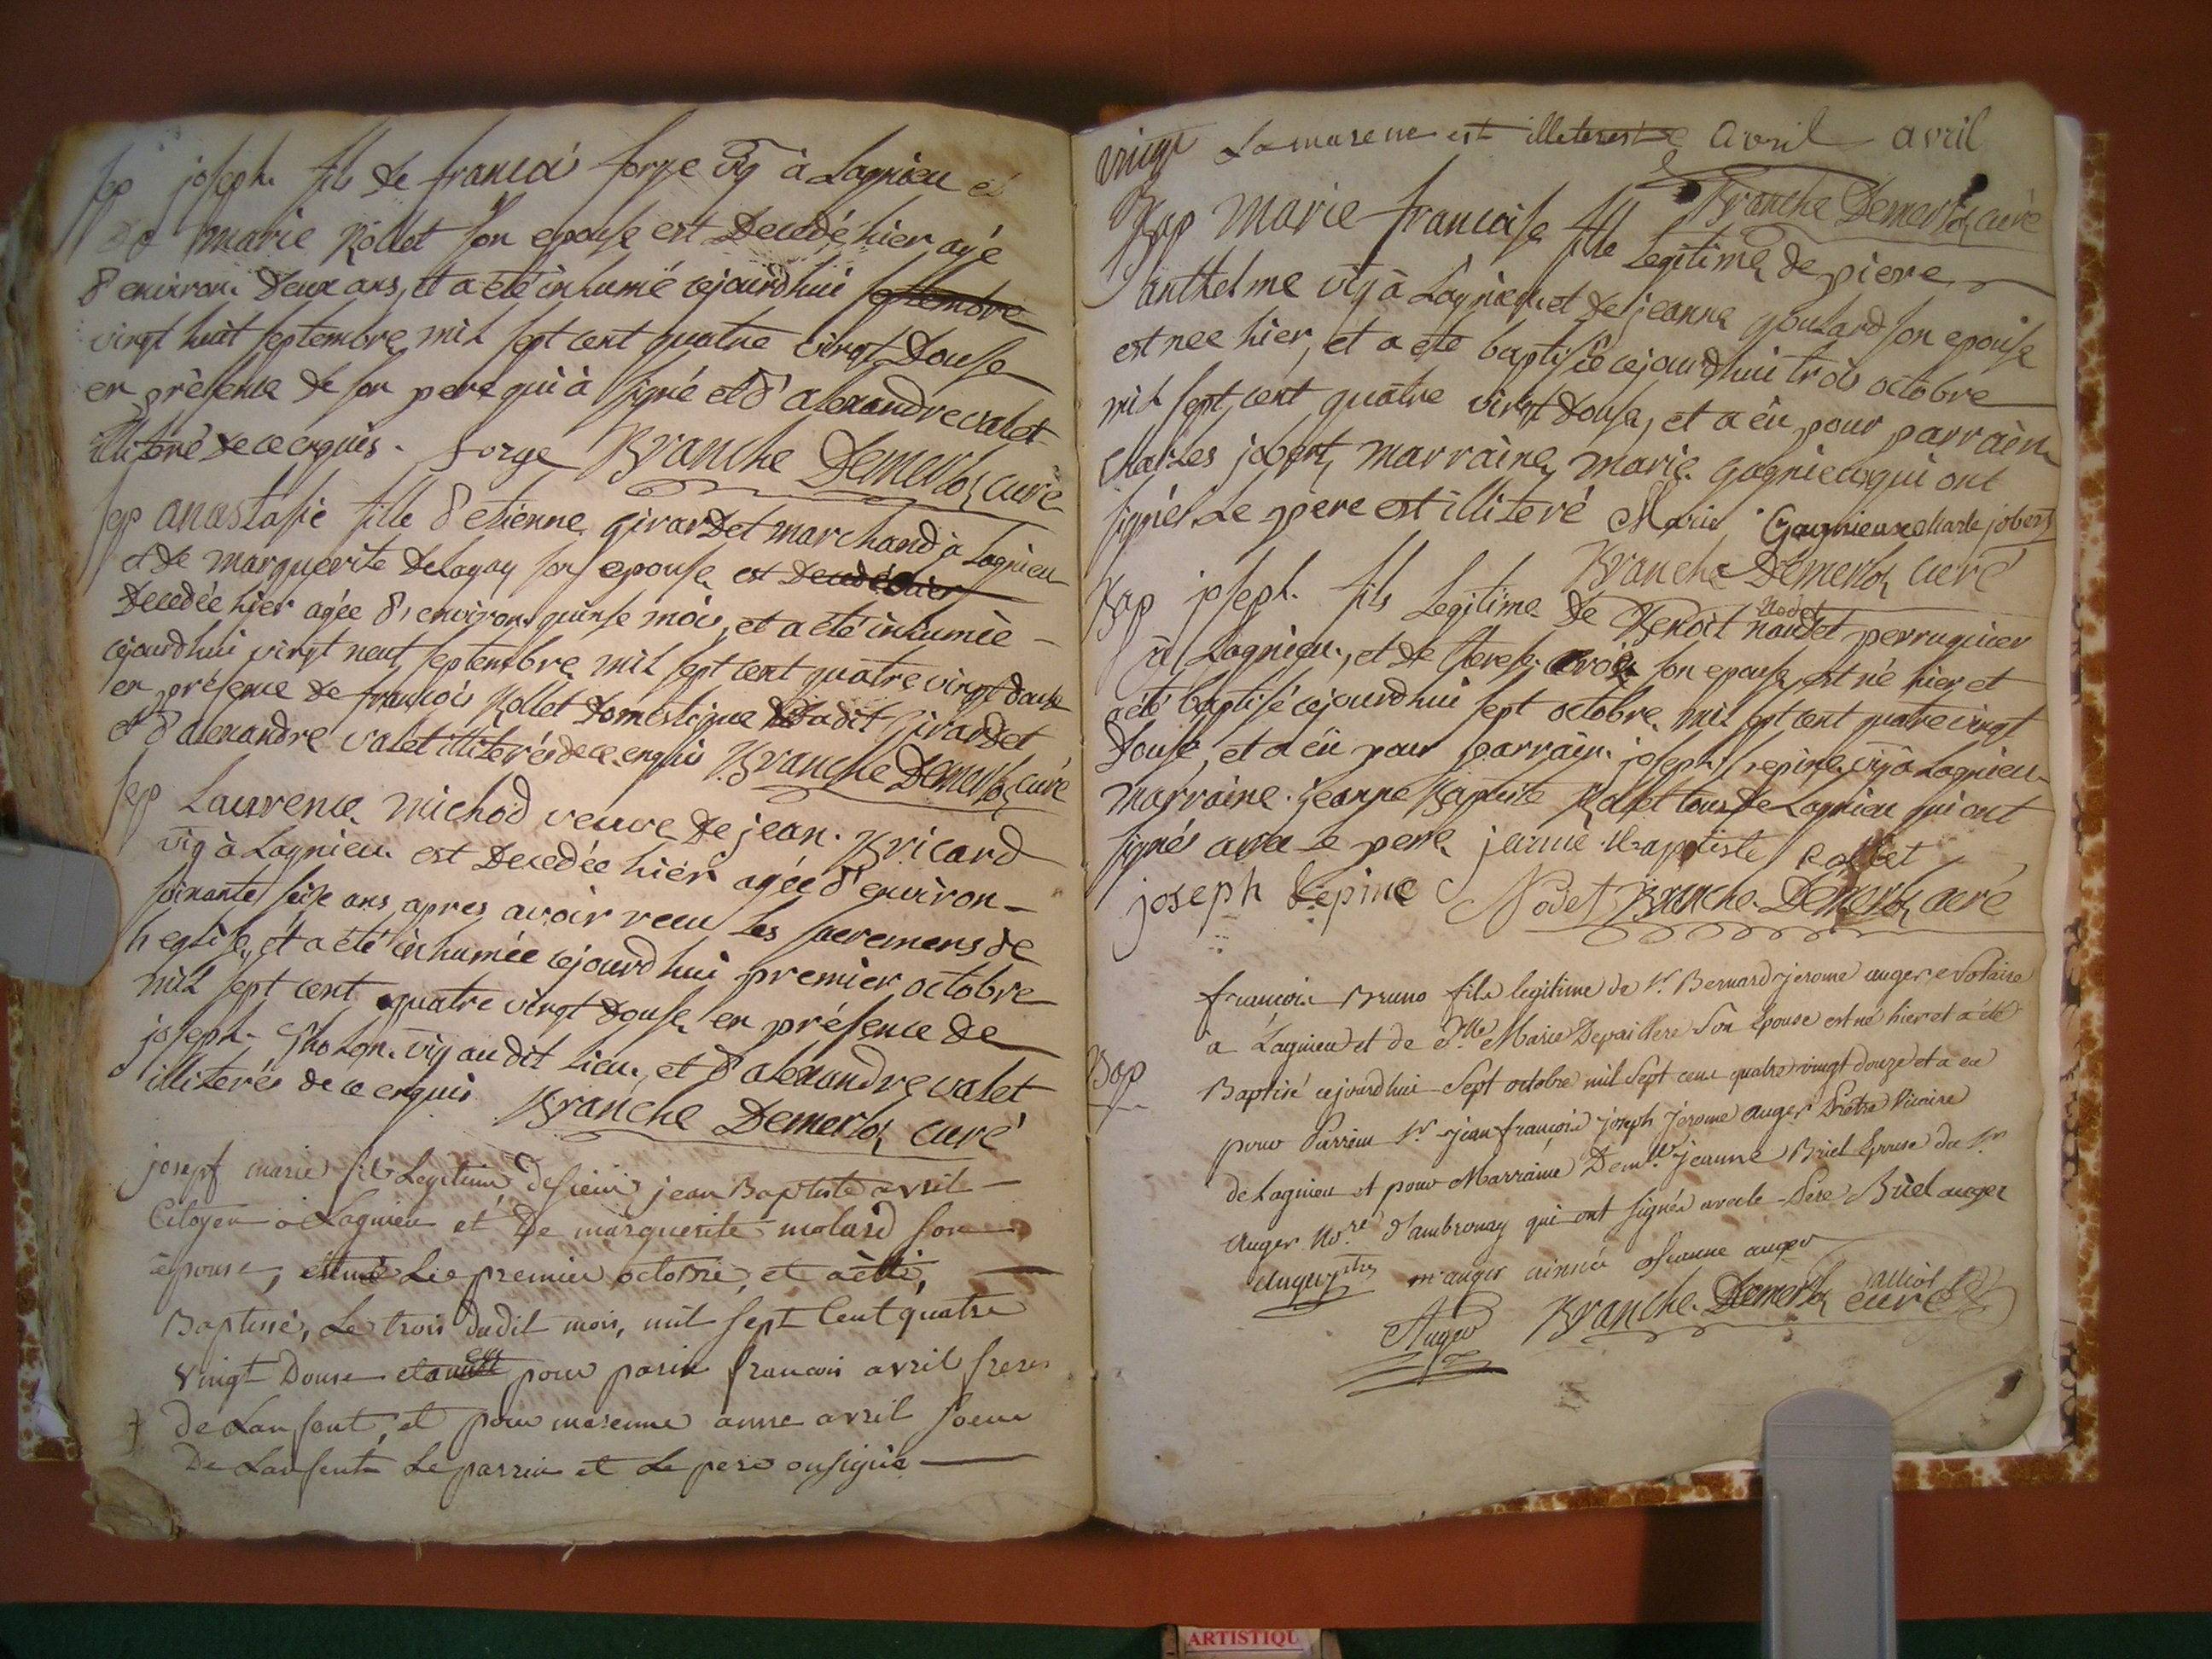 Sep joseph fils de francoi forge vig à Lagnieu et
de marie Rollet son epouse est decedé hier agé
d'environ deux ans, et a été inhumé cejourdhui septembre
vingt huit septembre mil sept cent quatre vingt douse
en présence de son pere qui à signé et d'alexandre valet
illiteré de ce enquis. forge Branche Demerlos curé
Sep anastasie fille d'etienne girardet marchand à Lagnieu
et de marguerite Delagay son epouse est decedé hier
decedée hier agée d'environ quinse mois, et a été inhumée
cejourdhui vingt neuf septembre mil sept cent quatre vingt douse
en présence de francois Rollet domestique dudit girardet
et d'alexandre valet illiterés de ce enquis Branche Demerlos curé
Sep Laurence michod veuve de jean Bricard
vig à Lagnieu est decedée hier agée d'environ
soixante seise ans apres avoir recu les sacremens de
l'eglise, et a été inhumée cejourdhui premier octobre
mil sept cent quatre vingt douse en présence de
joseph vig audit lieu, et d'alexandre valet
illiterés de ce enquis Branche Demerlos curé
josepf marie fils Legitime de sieur jean Baptiste avril
Citoyen a Lagnieu et De marguerite molard son
epouse, est né Le premier octobre, et a été,
Baptisé, Le trois dudit mois, mil sept Cent quatre
vingt Douse et a pour parin francois avril frere
de Lanfent, et pour marenne anne avril soeur
De Lanfent Le parrin et Le pere on signé
La marene est illeterest avril avril
Branche Demerlos curé
Bap marie francoise fille Legitime de piere
anthelme vig à Lagnieu et de jeanne goutard son epouse
est nee hier, et a eté baptisée cejourdhui trois octobre
mil sept cent quatre vingt douse, et a eü pour parrain
Charles jobert, marraine marie gagnieux qui ont
signés Le pere est illiteré Marie Gagnieux charle jobert
Branche Demerlos curé
Bap joseph fils Legitime de Benoit Nodet perruquier
à Lagnieu, et de Terese son epouse, est né hier, et
a été baptisé cejourdhui sept octobre mil sept cent quatre vingt
douse, et a eü pour parrain joseph Lepine vig à Lagnieu
marraine jeanne Baptiste Rollet tous de Lagnieu qui ont
signés avec le pere jeanne Baptiste Rollet
joseph Lepine Nodet Branche Demerlos curé
françois Bruno fils legitime de Sr. Bernard jerome auger Notaire
à Lagnieu et de dlle Marie Depaillere son Epouse est né hier et a été
Bap Baptisé cejourdhui sept octobre mil sept cens quatre vingt douze et a eu
pour Parrein Sr jean françois joseph jerome auger Prêtre Vicaire
de Lagnieu et pour Marraine Demlle jeanne Briel Epouse du Sr
Auger Nore d'ambronay qui ont signés avec le Père Brïel auger
Auger ptre m auger ainnée auger
Auger Branche Demerlos curé